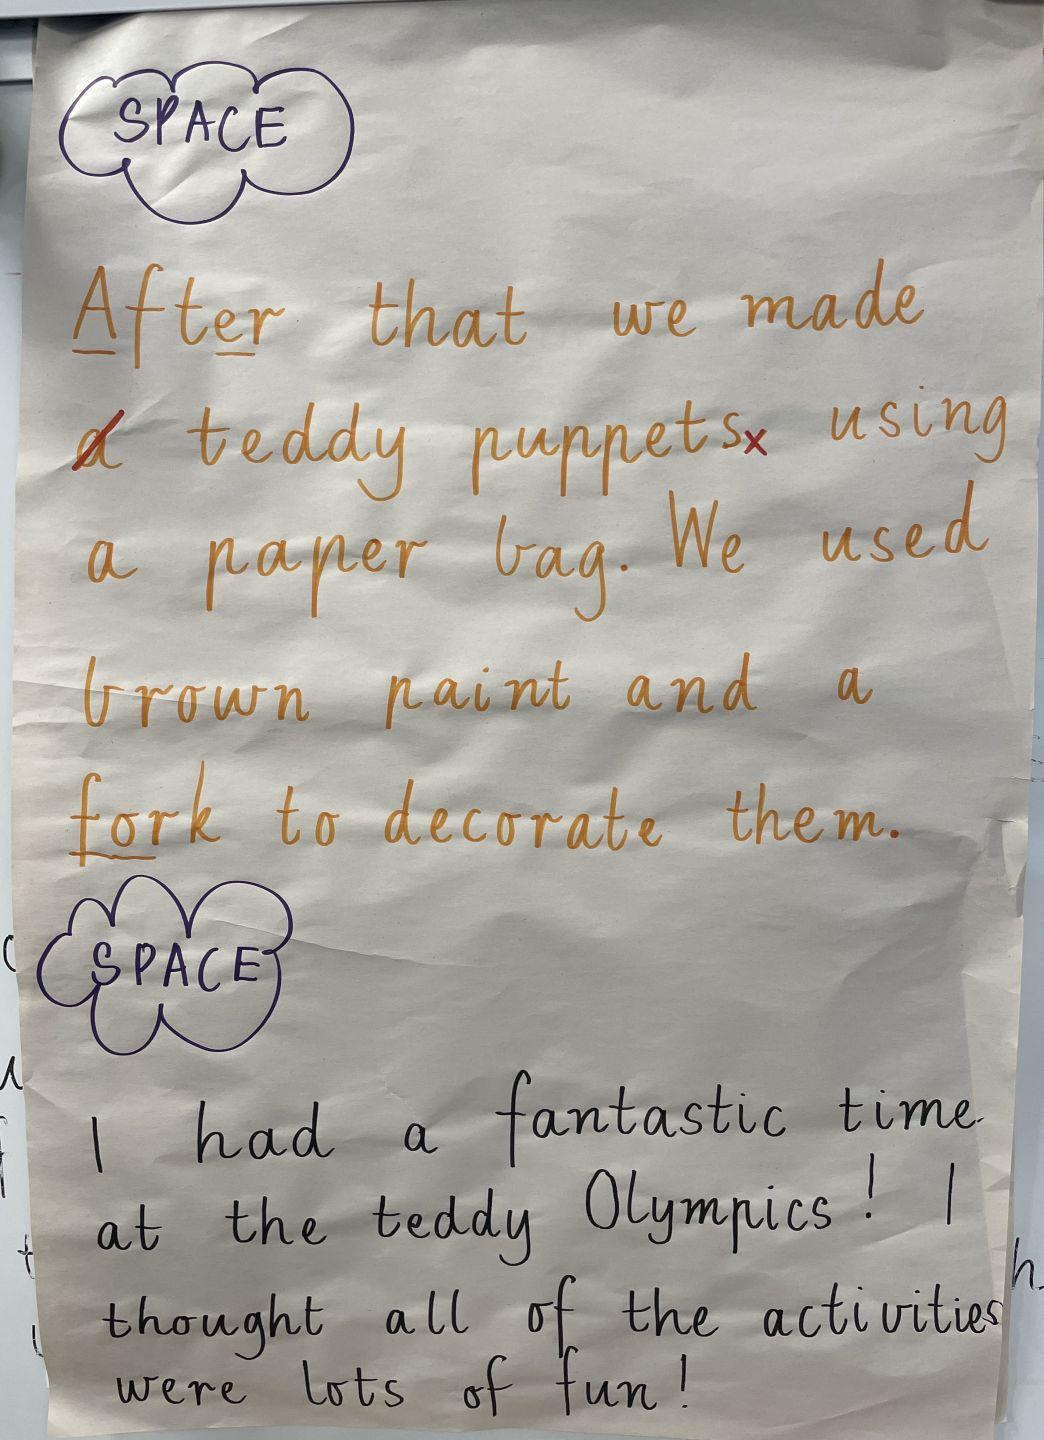 SPACE
After that we made
a teddy puppetsx using
a paper bag. We used
brown paint and a
fork to decorate them.
SPACE
I had a fantastic time
at the teddy Olympics! I
thought all of the activities
were lots of fun!